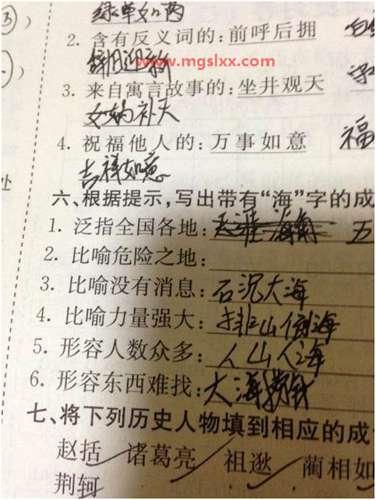 绿草如茵
2. 含有反义词的:前呼后拥
www.mgslxx.com
辞旧迎新
3. 来自寓言故事的:坐井观天
女娲补天
4. 祝福他人的:万事如意 福
吉祥如意
处
六、根据提示,写出带有“海”字的成
1. 泛指全国各地:天涯海角 五
2. 比喻危险之地:
3. 比喻没有消息:石沉大海
4. 比喻力量强大:排山倒海
5. 形容人数众多:人山人海
6. 形容东西难找:大海捞针
七、将下列历史人物填到相应的成
赵括 诸葛亮 祖逖 蔺相如
荆轲